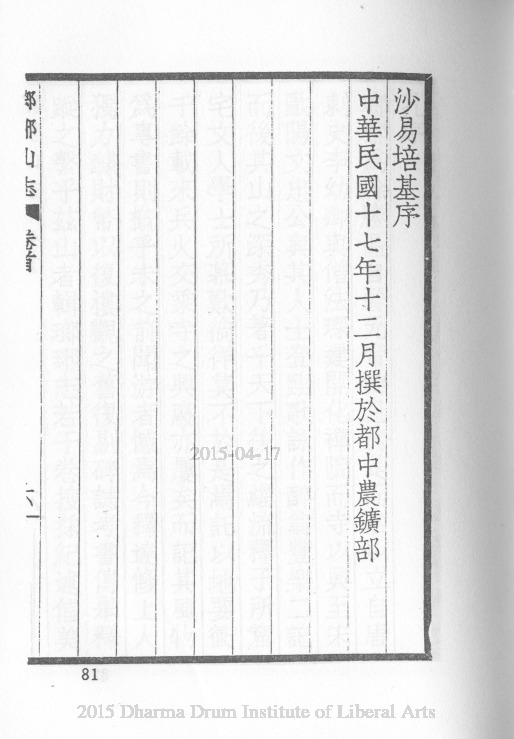 沙易培基序
中華民國十七年十二月撰於都中農鑛部
瑯琊山志
卷首
六
2015-04-17
81
2015 Dharma Drum Institute of Liberal Arts